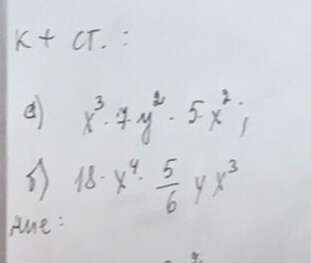 к + ст. :
а) x³ · 7 y² · 5 x² ;
б) 18 · x⁴ · 5/6 y x³
ме :